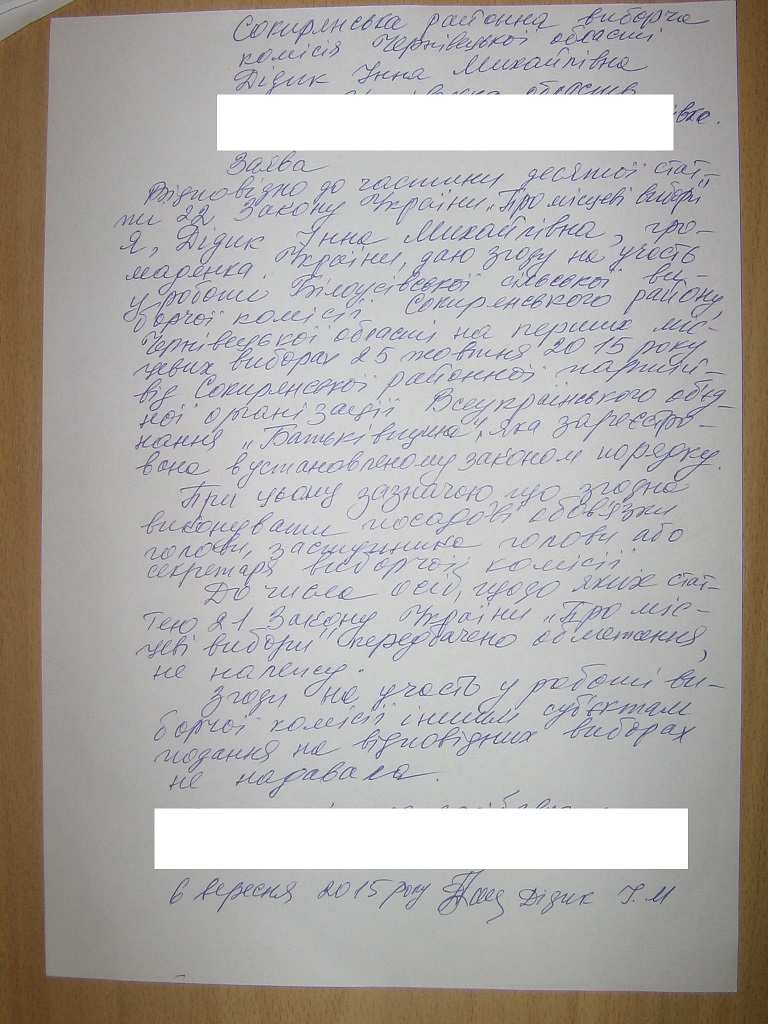 Сокирянська районна виборча
комісія Чернівецької області
Дідик Інна Михайлівна
область
івка.
Заява
Відповідно до частини десятої стат-
ти 22 Закону України „Про місцеві вибори"
Я, Дідик Інна Михайлівна, гро-
мадянка України, даю згоду на участь
у роботі Білоусівської сільської ви-
борчої комісії Сокирянського району,
Чернівецької області на перших міс-
цевих виборах 25 жовтня 2015 року
від Сокирянської районної партій-
ної організації Всеукраїнського об'єд-
нання „Батьківщина", яка зареєстро-
вана в установленому законом порядку.
При цьому зазначаю що згодна
виконувати посадові обов'язки
голови, заступника голови або
секретаря виборчої комісії
До числа осіб, щодо яких стат-
тею 21 Закону України „Про міс-
цеві вибори" передбачено обмеження,
не належу.
Згоди на участь у роботі ви-
борчої комісії іншим суб'єктам
подання на відповідних виборах
не надавала.
6 вересня 2015 року Дідик І.М